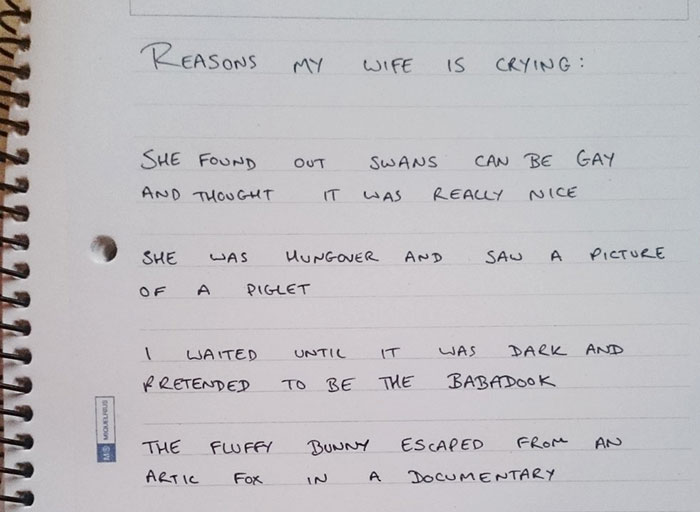 REASONS MY WIFE IS CRYING:
SHE FOUND OUT SWANS CAN BE GAY
AND THOUGHT IT WAS REALLY NICE
SHE WAS HUNGOVER AND SAW A PICTURE
OF A PIGLET
I WAITED UNTIL IT WAS DARK AND
PRETENDED TO BE THE BABADOOK
THE FLUFFY BUNNY ESCAPED FROM AN
ARTIC FOX IN A DOCUMENTARY
MIQUELRIUS